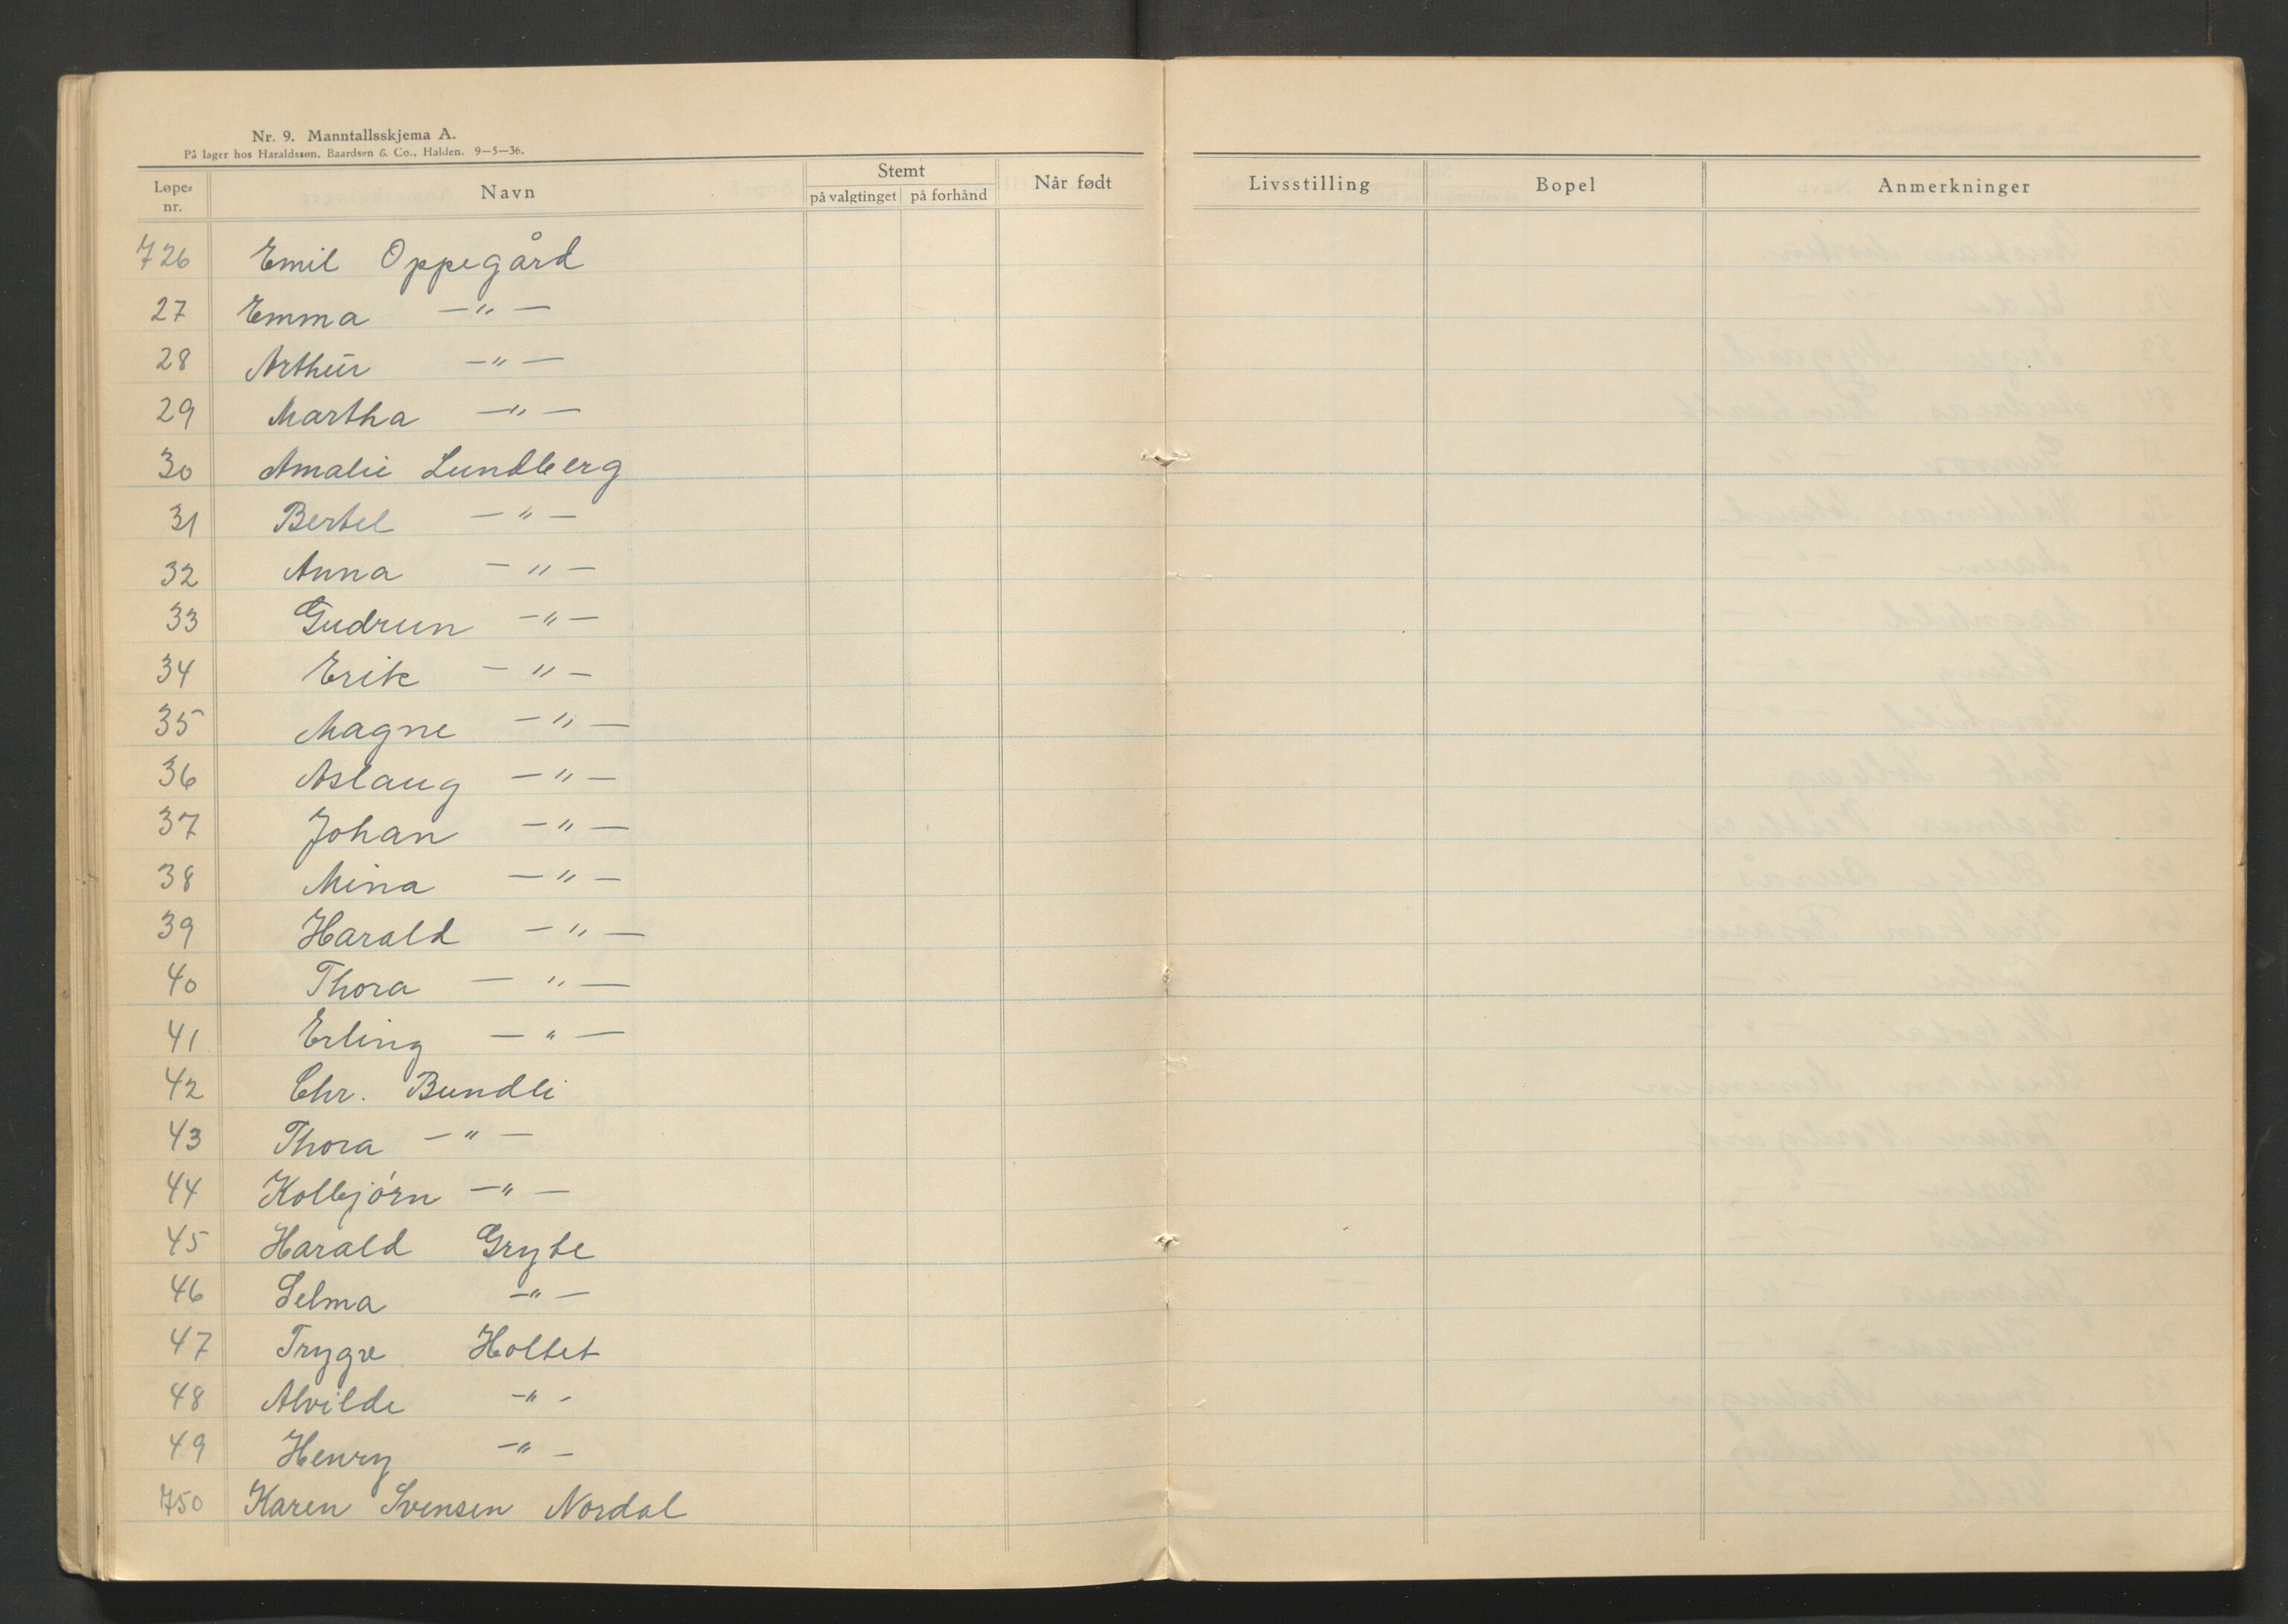 Nr. 9. Manntallsskjema A.
På lager hos Haraldssøn, Baardsen & Co., Halden. 9—5—36.
Løpe-nr. Navn Stemt på valgtinget på forhånd Når født Livsstilling Bopel Anmerkninger
726 Emil Oppegård
27 Emma —"—
28 Arthur —"—
29 Martha —"—
30 Amalie Lundberg
31 Bertel —"—
32 Anna —"—
33 Gudrun —"—
34 Erik —"—
35 Magne —"—
36 Aslaug —"—
37 Johan —"—
38 Mina —"—
39 Harald —"—
40 Thora —"—
41 Erling —"—
42 Chr. Bundli
43 Thora —"—
44 Kolbjørn —"—
45 Harald Grybe
46 Selma —"—
47 Trygve Holtet
48 Alvilde —"—
49 Henry —"—
750 Karen Svensen Nordal